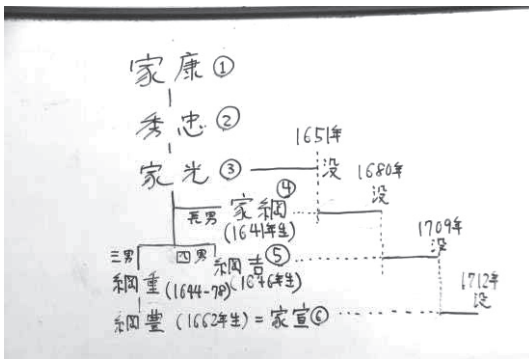 家康①
秀忠②
家光③
1651年
没
1680年
没
長男
家綱④
(1641年生)
1709年
没
三男
四男
綱吉⑤
(1646年生)
綱重(1644-78)
1712年
没
綱豊(1662年生)=家宣⑥